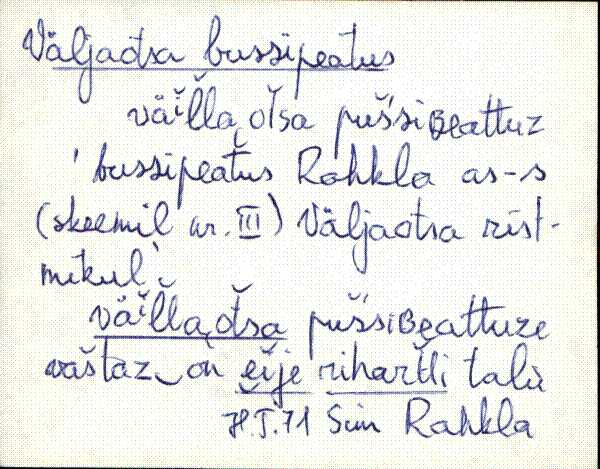 Väljaotsa bussipeatus
väilla_otsa pušsiBeattuz
' bussipeatus Rahkla as-s
(skeemil nr. III) Väljaotsa rist-
mikul'.
väilla_otsa pušsiBeattuze
vaštaz on eije rihartli talu
H.J.71 Sim Rahkla